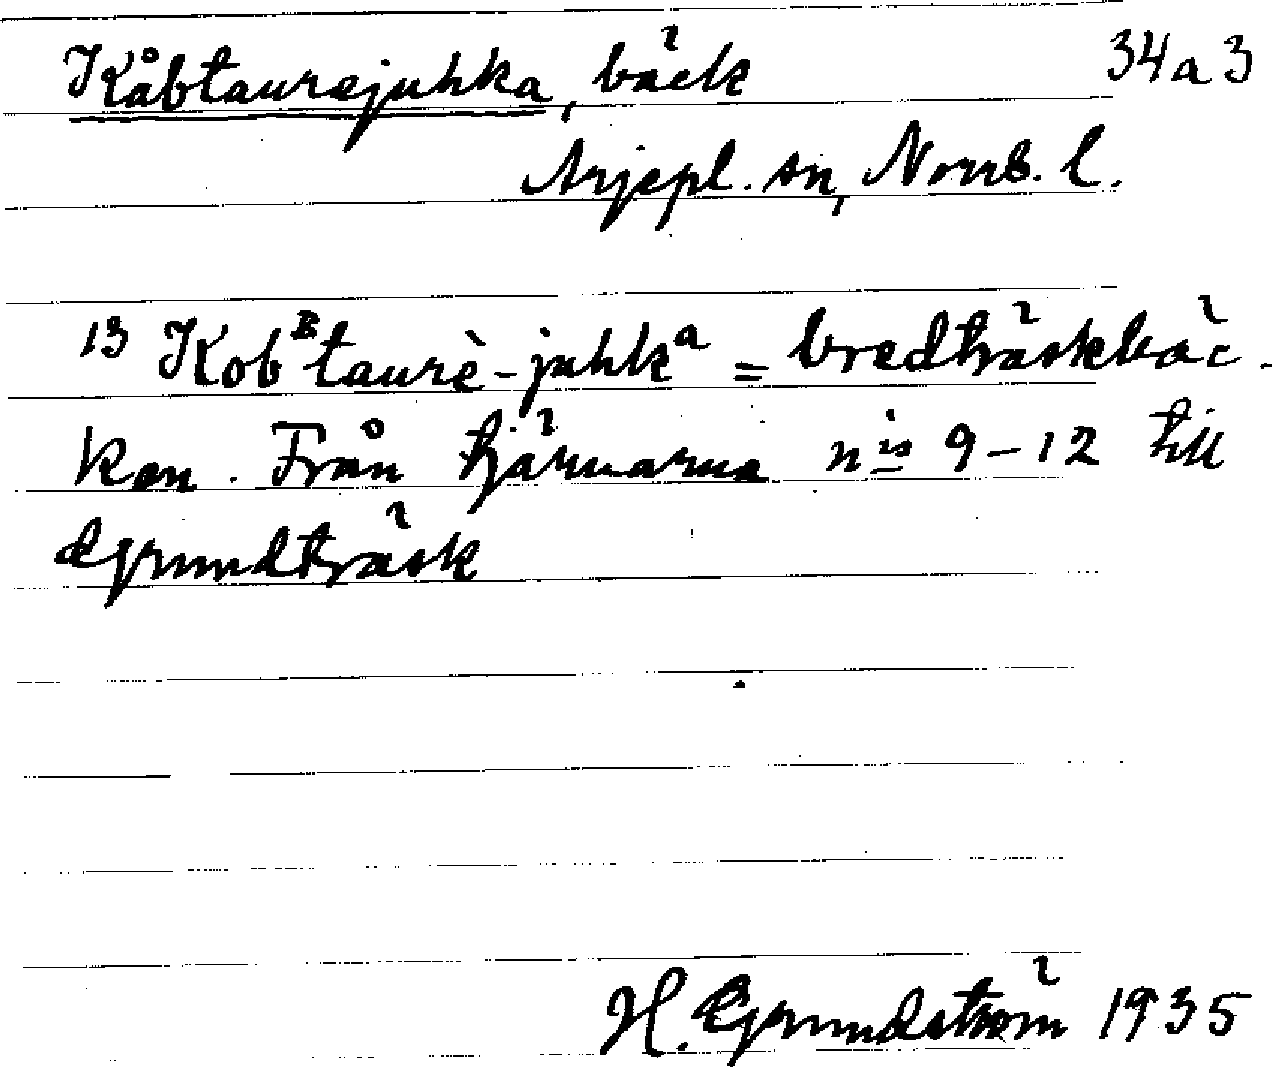 Kåbtaurejuhka, bäck 34a3
Arjepl. sn, Norrb. l.
13 Kobᴮtaurè-juhkᵃ = bredträskbäc-
ken. Från tjärnarna nis 9-12 till
Grundträsk
H. Grundström 1935